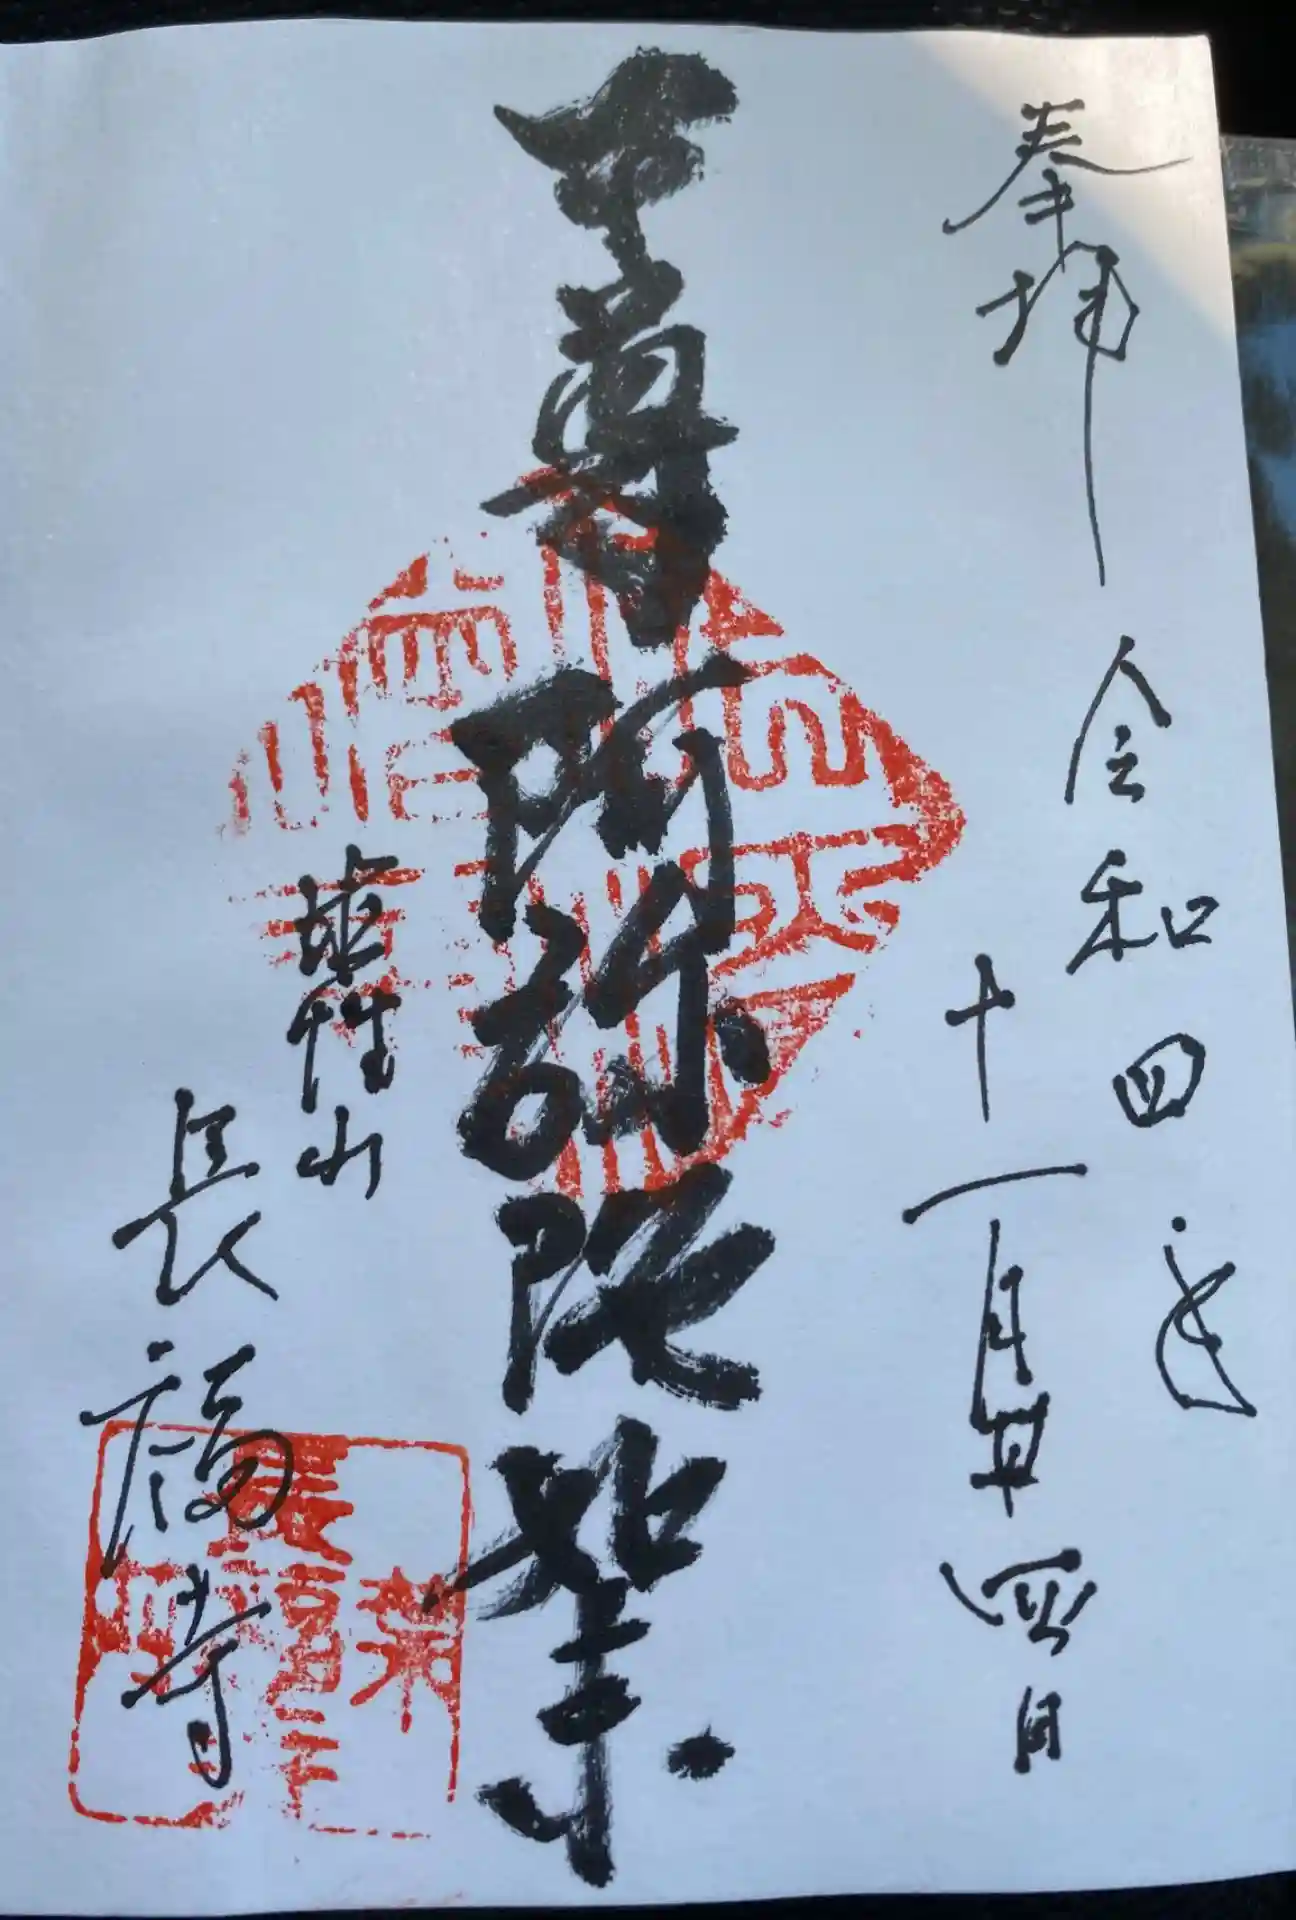 奉拝
令和四年
十一月廿四日
本尊阿弥陀如来
性山
長福寺